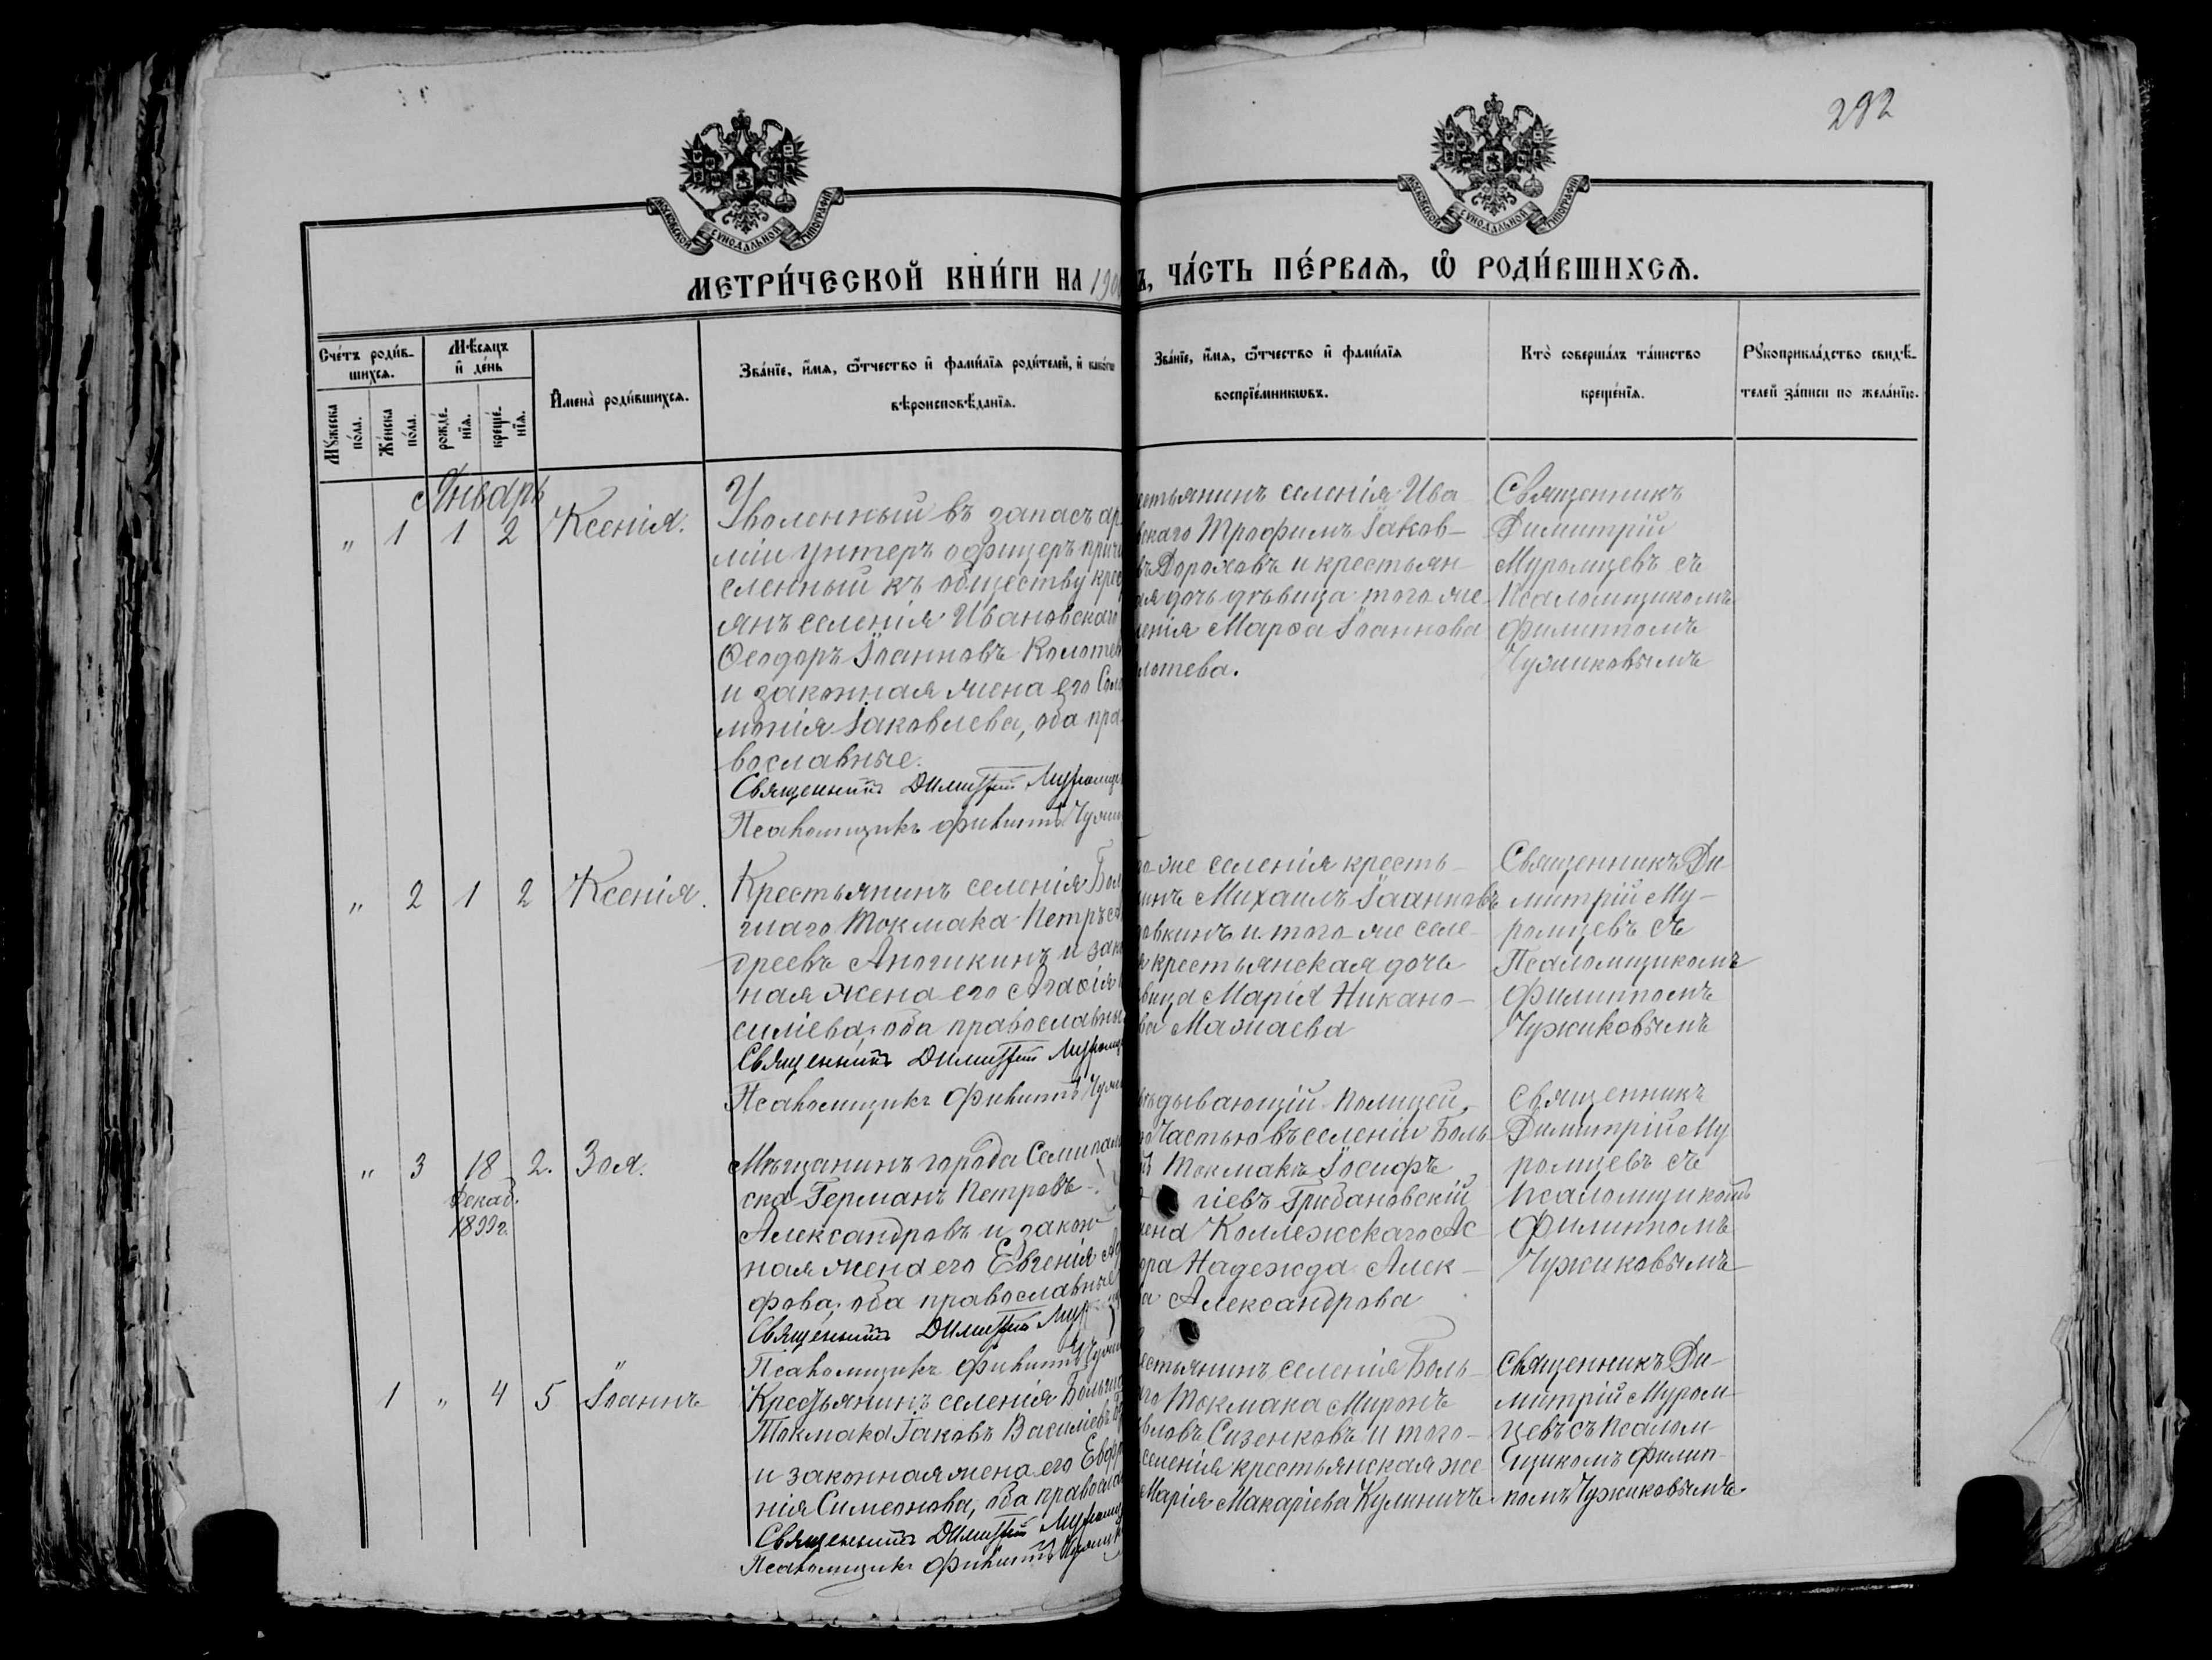 292
МОСКОВСКОЙ СѴНОДАЛЬНОЙ ТИПОГРАФІИ
МОСКОВСКОЙ СѴНОДАЛЬНОЙ ТИПОГРАФІИ
МЕТРИ́ЧЕСКОЙ КНИ́ГИ НА 190
Ъ, ЧА́СТЬ ПЕ́РВАѦ, Ѽ РОДИ́ВШИХСѦ.
Сче́тъ роди́в-
шихсѧ.
Мѣ́сѧцъ
и҆ де́нь
Мꙋ́жеска
по́ла.
Же́нска
по́ла.
рожде́-
нїѧ.
креще́-
нїѧ.
И҆мена̀ роди́вшихсѧ.
Зва́нїе, и҆́мѧ, ѻ҆́тчество и҆ фами́лїѧ роди́телей, и҆
вѣроисповѣ́данїѧ.
Зва́нїе, и҆́мѧ, ѻ҆́тчество и҆ фами́лїѧ
воспрїе́мникѡвъ.
Кто̀ соверша́лъ та́инство
креще́нїѧ.
Рꙋкоприкла́дство свидѣ́-
телей за́писи по жела́нїю.
Январь
" 1 1 2 Ксенія.
Уволенный въ запасъ ар
міи унтеръ офицеръ при
сленный къ обществу крес
янъ селенія Ивановскаго
Ѳеодоръ Іоанновъ Колотев
и законная жена его Соло
монія Іаковлева, оба пра
вославные.
Священникъ Димитрій Муромце
Псаломщикъ Филиппъ Чужи
стьянинъ селенія Ива
вскаго Трофимъ Іаков-
въ Дороховъ и крестьян-
ая дочь дѣвица того же
ленія Марѳа Іоаннова
лотева.
Священникъ
Димитрій
Муромцевъ съ
Псаломщикомъ
Филиппомъ
Чужиковымъ
" 2 1 2 Ксенія.
Крестьянинъ селенія Бол
шаго Токмака Петръ
дреевъ Аночкинъ и зако
ная жена его Агаѳія
силіева, оба православны
Священникъ Димитрій Муромц
Псаломщикъ Филиппъ Чужи
го же селенія кресть-
инъ Михаилъ Іоанновъ
овкинъ и того же селе-
я крестьянская дочь
вица Марія Никано-
ва Мажаева
Священникъ Ди-
митрій Му-
ромцевъ съ
Псаломщикомъ
Филиппомъ
Чужиковымъ
" 3 18 2. Зоя.
Декаб.
1899 г.
Мѣщанинъ города Семипала
ска Германъ Петровъ
Александровъ и закон-
ная жена его Евгенія
фова, оба православные
Священникъ Димитрій Мур
Псаломщикъ Филиппъ Чужи
вѣдывающій Полицей-
ю Частью въ селеніи Боль-
Токмакъ Іосифъ
гіевъ Грибановскій
жена Коллежскаго Ас-
ора Надежда Алек-
а Александрова
Священникъ
Димитрій Му
ромцевъ съ
Псаломщикомъ
Филиппомъ
Чужиковымъ
"
1 " 4 5 Іоаннъ
Крестьянинъ селенія Больша
Токмака Іаковъ Василіевъ
и законная жена его Евфро
нія Симеонова, оба правосла
Священникъ Димитрій Муромц
Псаломщикъ Филиппъ Чужик
естьянинъ селенія Боль-
го Токмака Миронъ
вловъ Сизенковъ и того-
селенія крестьянская же
Марія Макаріева Кулиничъ.
Священникъ Ди-
митрій Муром-
цевъ съ Псалом-
щикомъ Филип-
помъ Чужиковымъ.